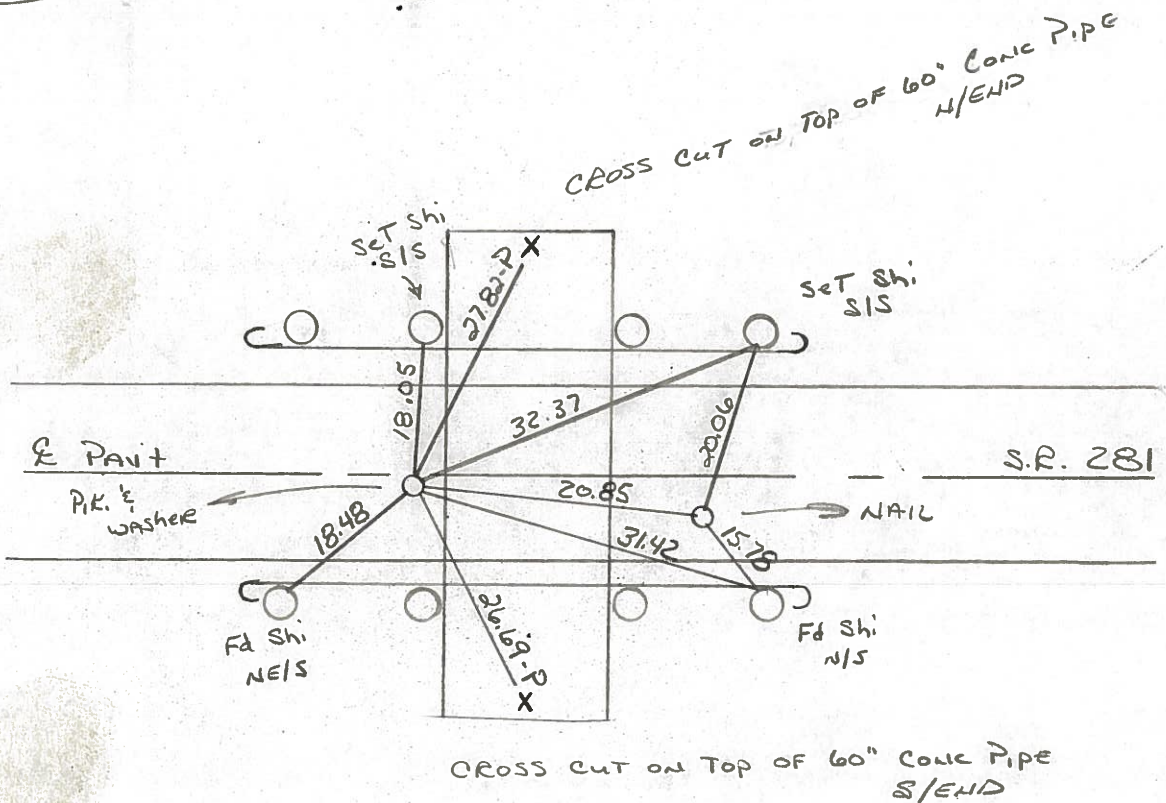 CROSS CUT ON TOP OF 60" CONC PIPE
N/END
SET Shi
S/S
27.82-P
SET Shi
S/S
18.05
32.37
20.06
℄ PAV't
S.R. 281
P.K. &
WASHER
20.85
NAIL
18.48
31.42
15.78
26.69-P
Fd Shi
NE/S
Fd Shi
N/S
X
X
CROSS CUT ON TOP OF 60" CONC PIPE
S/END